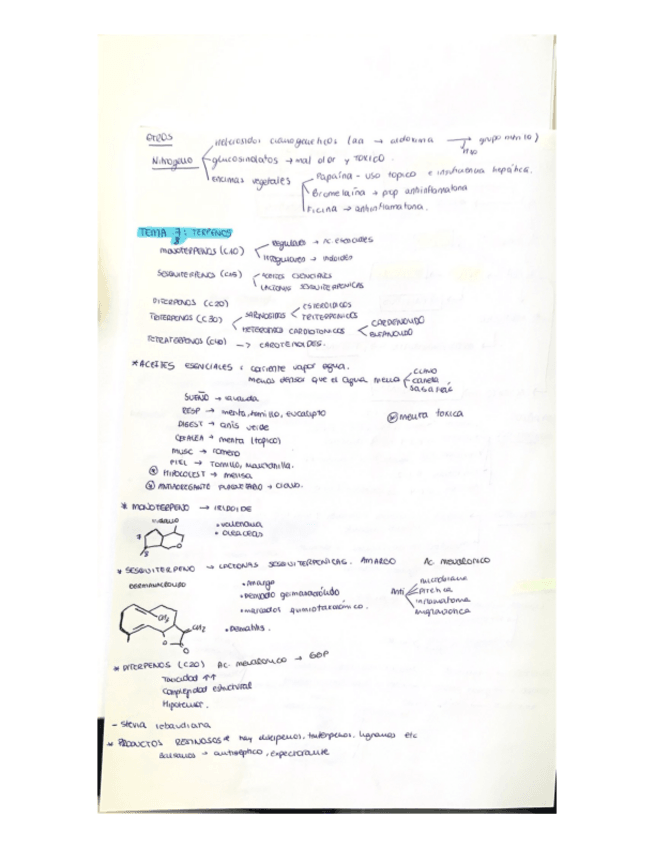 OTROS
Heterosidos cianogenéticos (aa → aldoxima → grupo nitrilo)
Nitrógeno
glucosinolatos → mal olor y TOXICO.
Encimas vegetales
Papaína - uso topico e insuficiencia hepática.
Bromelaína → prop antiinflamatoria
Ficina → antiinflamatoria.
TEMA 7: TERPENOS
8
MONOTERPENOS (C10)
Regulares → Ac. esenciales
Irregulares → iridoides
SESQUITERPENO (C15)
ACEITES ESENCIALES
LACTONAS SESQUITERPENICAS
DITERPENOS (C20)
TRITERPENOS (C30)
SAPONOSIDOS
ESTEROIDICOS
TRITERPENICOS
HETEROSIDOS CARDIOTONICOS
CARDENOLIDO
BUFANOLIDO
TETRATERPENOS (C40) → CAROTENOIDES.
* ACEITES ESENCIALES : corriente vapor agua.
Menos densos que el agua menos
CLAVO
canela
sasafrás
SUEÑO → lavanda
RESP → menta, tomillo, eucalipto
DIGEST → anis verde
CEFALEA → menta (topico)
MUSC → romero
PIEL → Tomillo, Manzanilla.
HIPOCOLEST → melisa
ANTIAGREGANTE PLAQUETARIO → clavo.
toxica
* MONOTERPENO → IRIDOIDE
• valeriana
• oleaceas
7
8
O
* SESQUITERPENO → LACTONAS SESQUITERPENICAS. AMARGO Ac mevalonico
GERMACRANOLIDO
• Amargo
• Derivado germacranólido
• marcados quimiotaxonomico.
• Dermatitis.
Anti
microbiana
inflamatoria
migrañosica
CH3
CH2
O
O
* DITERPENOS (C20) Ac. mevalonico →
Toxicidad ↑↑
Complejidad estructural
Hipotensor.
- Stevia rebaudiana
* PRODUCTOS RESINOSOS * hay diterpenos, triterpenos, lignanos etc
Balsamos → antiséptico, expectorante